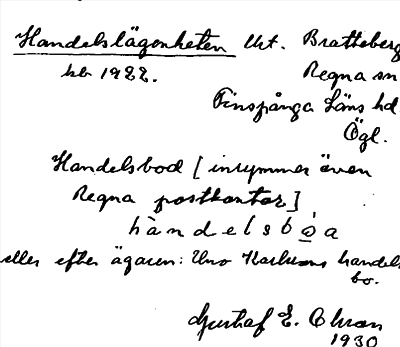 Handelslägenheten Urt. Bratteberg
kb 1922. Regna sn
Finspånga läns hd
Ögl.
Handelsbod [inrymmer även
Regna postkontor]
hàndelsbó̲a
eller efter ägaren: Uno Karlssons handels
bo.
Gustaf E. Olsson
1930